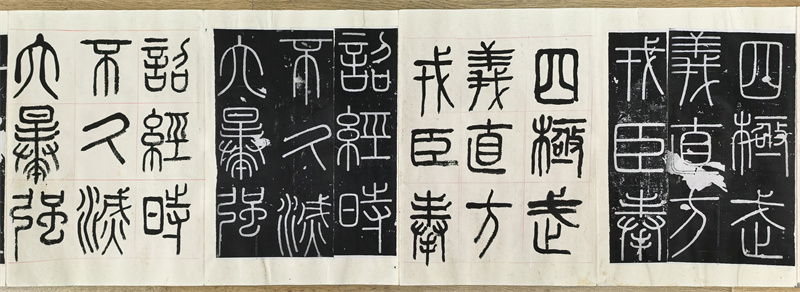 四極武
義直方
戎臣奉
四極武
義直方
戎臣奉
詔經時
不久滅
六暴強
詔經時
不久滅
六暴強